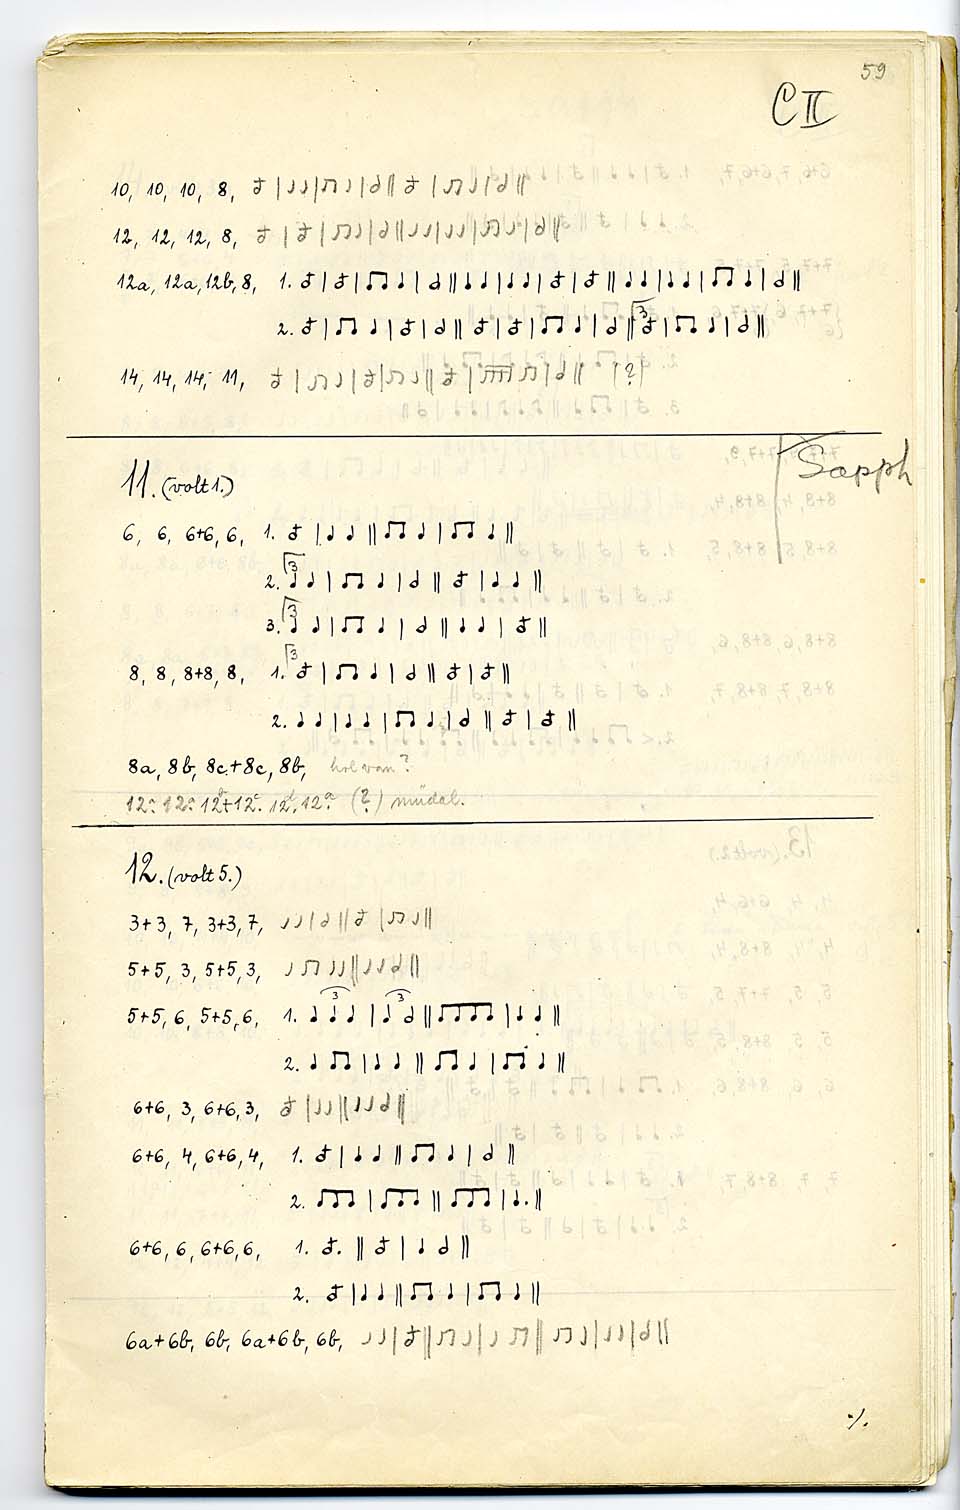 59
C II
10, 10, 10, 8,
12, 12, 12, 8,
12a, 12a, 12b, 8, 1.
2. 3
14, 14, 14, 11, (?)
Sapph
11. (volt 1.)
6, 6, 6+6, 6, 1.
2. 3
3. 3
8, 8, 8+8, 8, 1. 3
2.
8a, 8b, 8c+8c, 8b, hol van?
(?)
12. (volt 5.)
3+3, 7, 3+3, 7,
5+5, 3, 5+5, 3,
5+5, 6, 5+5, 6, 1. 3 3
2.
6+6, 3, 6+6, 3,
6+6, 4, 6+6, 4, 1.
2.
6+6, 6, 6+6, 6, 1.
2.
6a+6b, 6b, 6a+6b, 6b,
./.